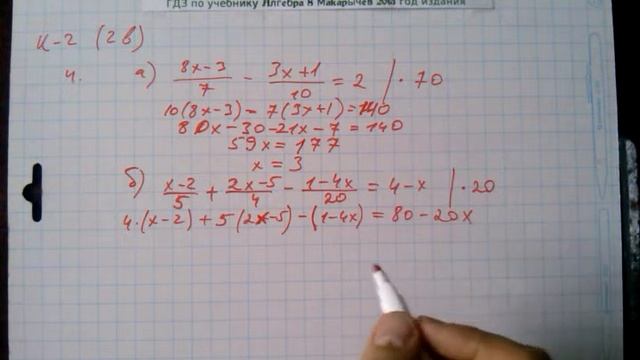 ГДЗ по учебнику Алгебра 8 Макарычев 2018 год издания
К-2 (2в)
4. а) (8x-3)/7 - (3x+1)/10 = 2 | · 70
10(8x-3) - 7(3x+1) = 140
80x - 30 - 21x - 7 = 140
59x = 177
x = 3
б) (x-2)/5 + (2x-5)/4 - (1-4x)/20 = 4-x | · 20
4·(x-2) + 5(2x-5) - (1-4x) = 80 - 20x